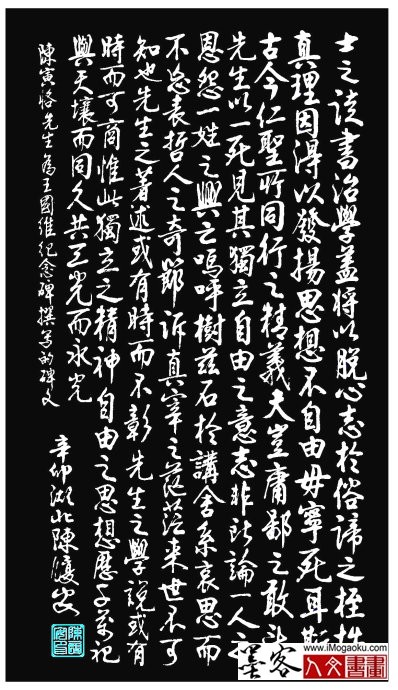 士之读書治學蓋將以脱心志於俗諦之桎梏
真理因得以發揚思想不自由毋寧死耳斯
古今仁聖所同行之精義夫豈庸鄙之敢望
先生以一死見其獨立自由之意志非所論一人之
恩怨一姓之興亡嗚呼樹兹石於講舍系哀思而
不忘表哲人之奇節訴真宰之茫茫来世不可
知也先生之著述或有時而不彰先生之學說或有
時而可商惟此獨立之精神自由之思想歷千萬祀
與天壤而同久共三光而永光
陳寅恪先生為王國維紀念碑撰寫的碑文
辛卯湖北陳
www.iMogaoku.com
墨客
人文書畫